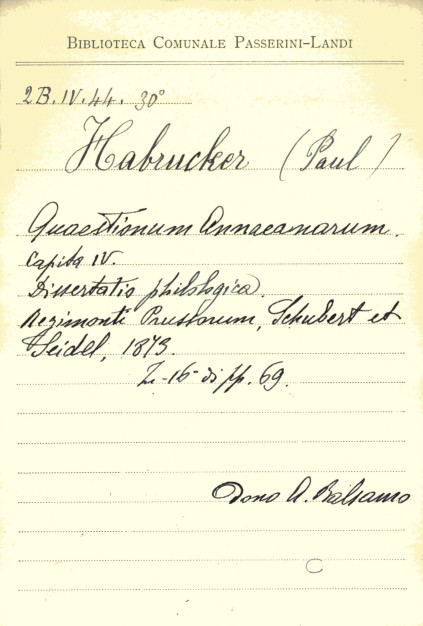 BIBLIOTECA COMUNALE PASSERINI-LANDI
2B.IV.44. 30°
Habrucker (Paul)
Quaestionum Annaeanarum.
Capita IV.
Dissertatio philologica.
Regimonti Prussorum, Schubert et
Seidel, 1873.
in-16° di pp. 69.
Dono A. Balsamo